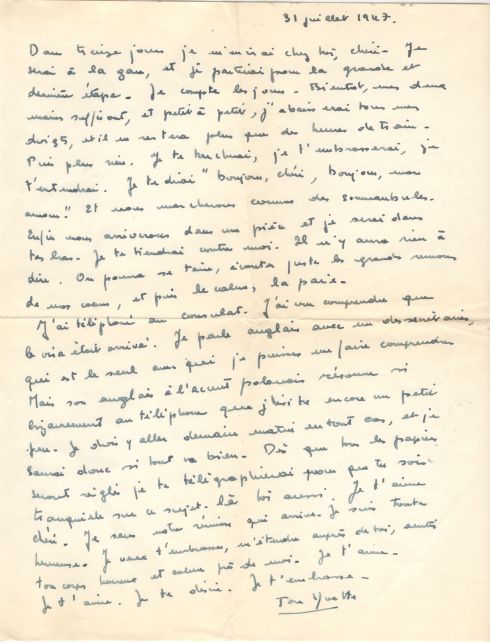 31 juillet 1947.
Dans treize jours je m'en irai chez toi, chéri. Je
serai à la gare, et je partirai pour la grande et
dernière étape. Je compte les jours. Bientôt, mes deux
mains suffiront, et petit à petit, j'abaisserai tous mes
doigts, et il ne restera plus que des heures de train.
Puis plus rien. Je te toucherai, je t'embrasserai, je
t'entendrai. Je te dirai "Bonjour, chéri, bonjour, mon
amour." Et nous marcherons comme des somnambules.
Enfin nous arriverons dans une pièce et je serai dans
tes bras. Je te tiendrai contre moi. Il n'y aura rien à
dire. On pourra se taire, écouter juste les grands remous
de nos cœurs, et puis le calme, la paix.
J'ai téléphoné au consulat. J'ai cru comprendre que
le visa était arrivé. Je parle anglais avec un des secrétaires,
qui est le seul avec qui je puisse me faire comprendre
Mais son anglais à l'accent polonais résonne si
bizarrement au téléphone que j'hésite encore un petit
peu. Je dois y aller demain matin en tout cas, et je
saurai donc si tout va bien. Dès que tous les papiers
seront réglés je te télégraphierai pour que tu sois
tranquille sur ce sujet là toi aussi. Je t'aime
chéri. Je sens notre réunion qui arrive. Je suis toute
heureuse. Je veux t'embrasser, m'étendre auprès de toi, sentir
ton corps heureux et calme près de moi. Je t'aime.
Je t'aime. Je te désire. Je t'embrasse -
Ton Yvette